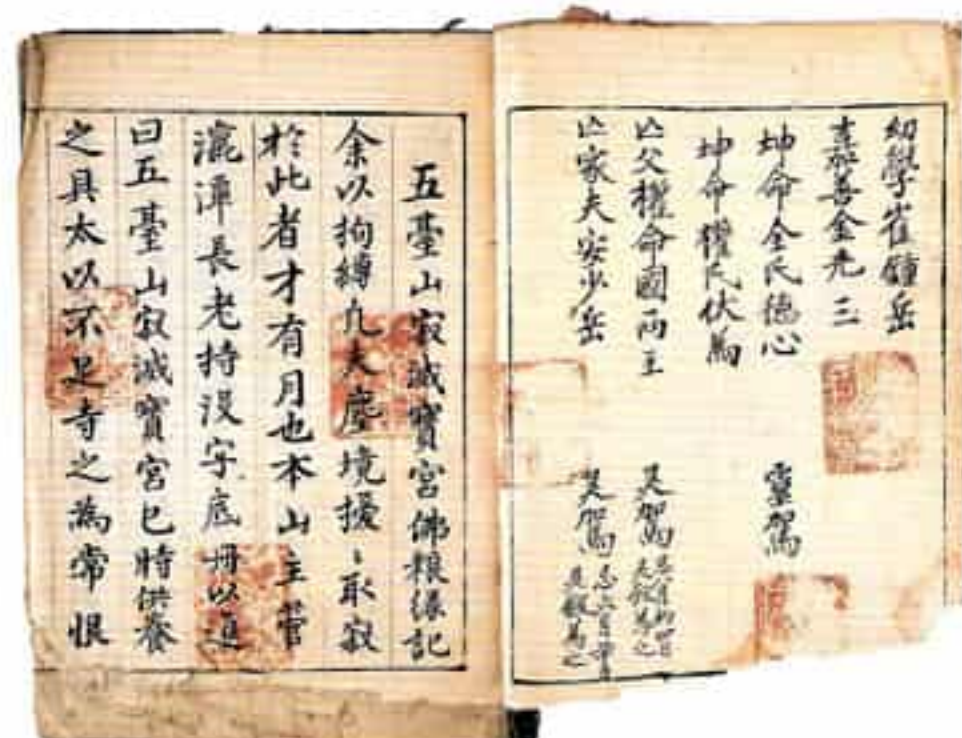 幼學崔鍾岳
善金光三
坤命全氏德心 靈駕
坤命權氏伏爲
亾父權命國兩主 灵駕
亾家夫安少岳 灵駕
五臺山寂滅寶宮佛粮緣記
余以拘縛凡夫塵境擾〻取寂
於此者才有月也本山主管
漉潭長老持沒字底冊以道
曰五臺山寂滅寶宮巳時供養
之具太以不足寺之為常恨